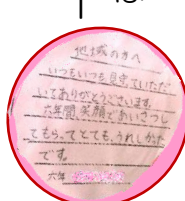 地域の方へ
いつもいつも見守っていただ
いてありがとうございます。
六年間笑顔であいさつし
てもらってとても、うれしかった
です。
六年